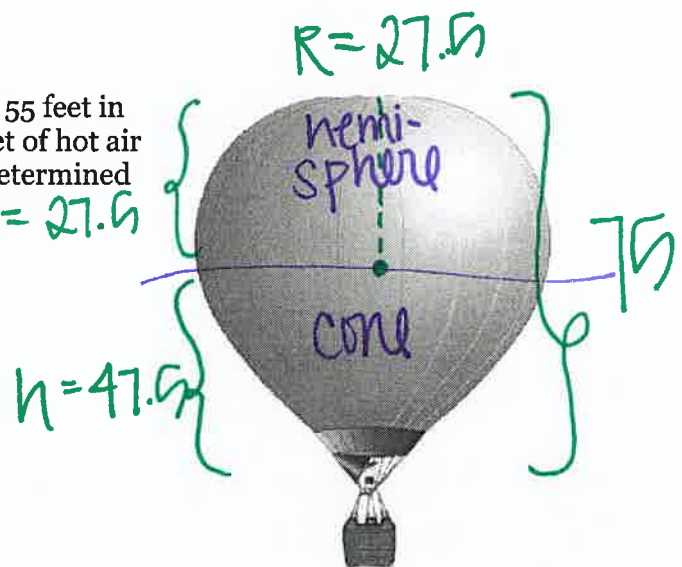 R = 27.5
55 feet in
et of hot air
etermined
= 27.5
hemi-
sphere
75
cone
h = 47.5